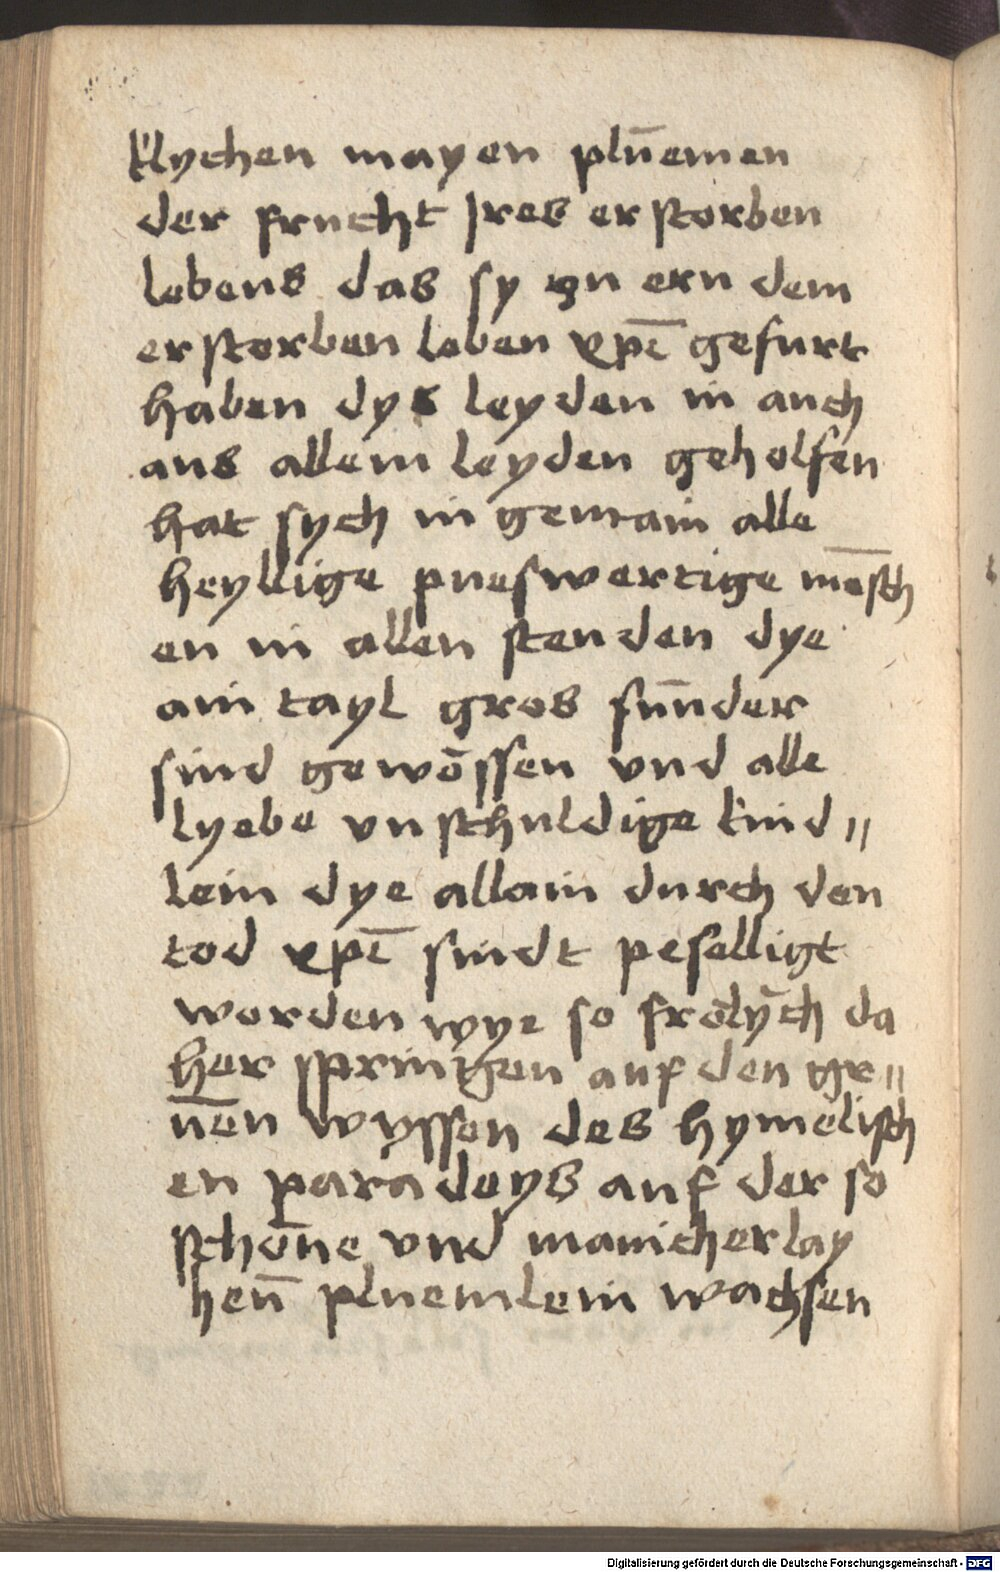 lychen mayen plūemen
der frucht jres erstorben
lebens das sy yn ern dem
erstorben leben xpī gefurt
haben dys leyden in auch
aus allem leyden geholfen
hat sych in gemain alle
heyllige pueswertige mēsch
en in allen stenden dye
ain tayl gros sūnder
sind gewössen vnd alle
lyebe vnschuldige kind〃
lein dye allain durch den
tod xpī sindt peselligt
worden wye so frölych da
her springen auf den gr〃
ūen wyssen des hymelisch
en paradeys auf der so
schöne vnd manicherlay
hen̄ pluemlein wachsen
Digitalisierung gefördert durch die Deutsche Forschungsgemeinschaft - DFG